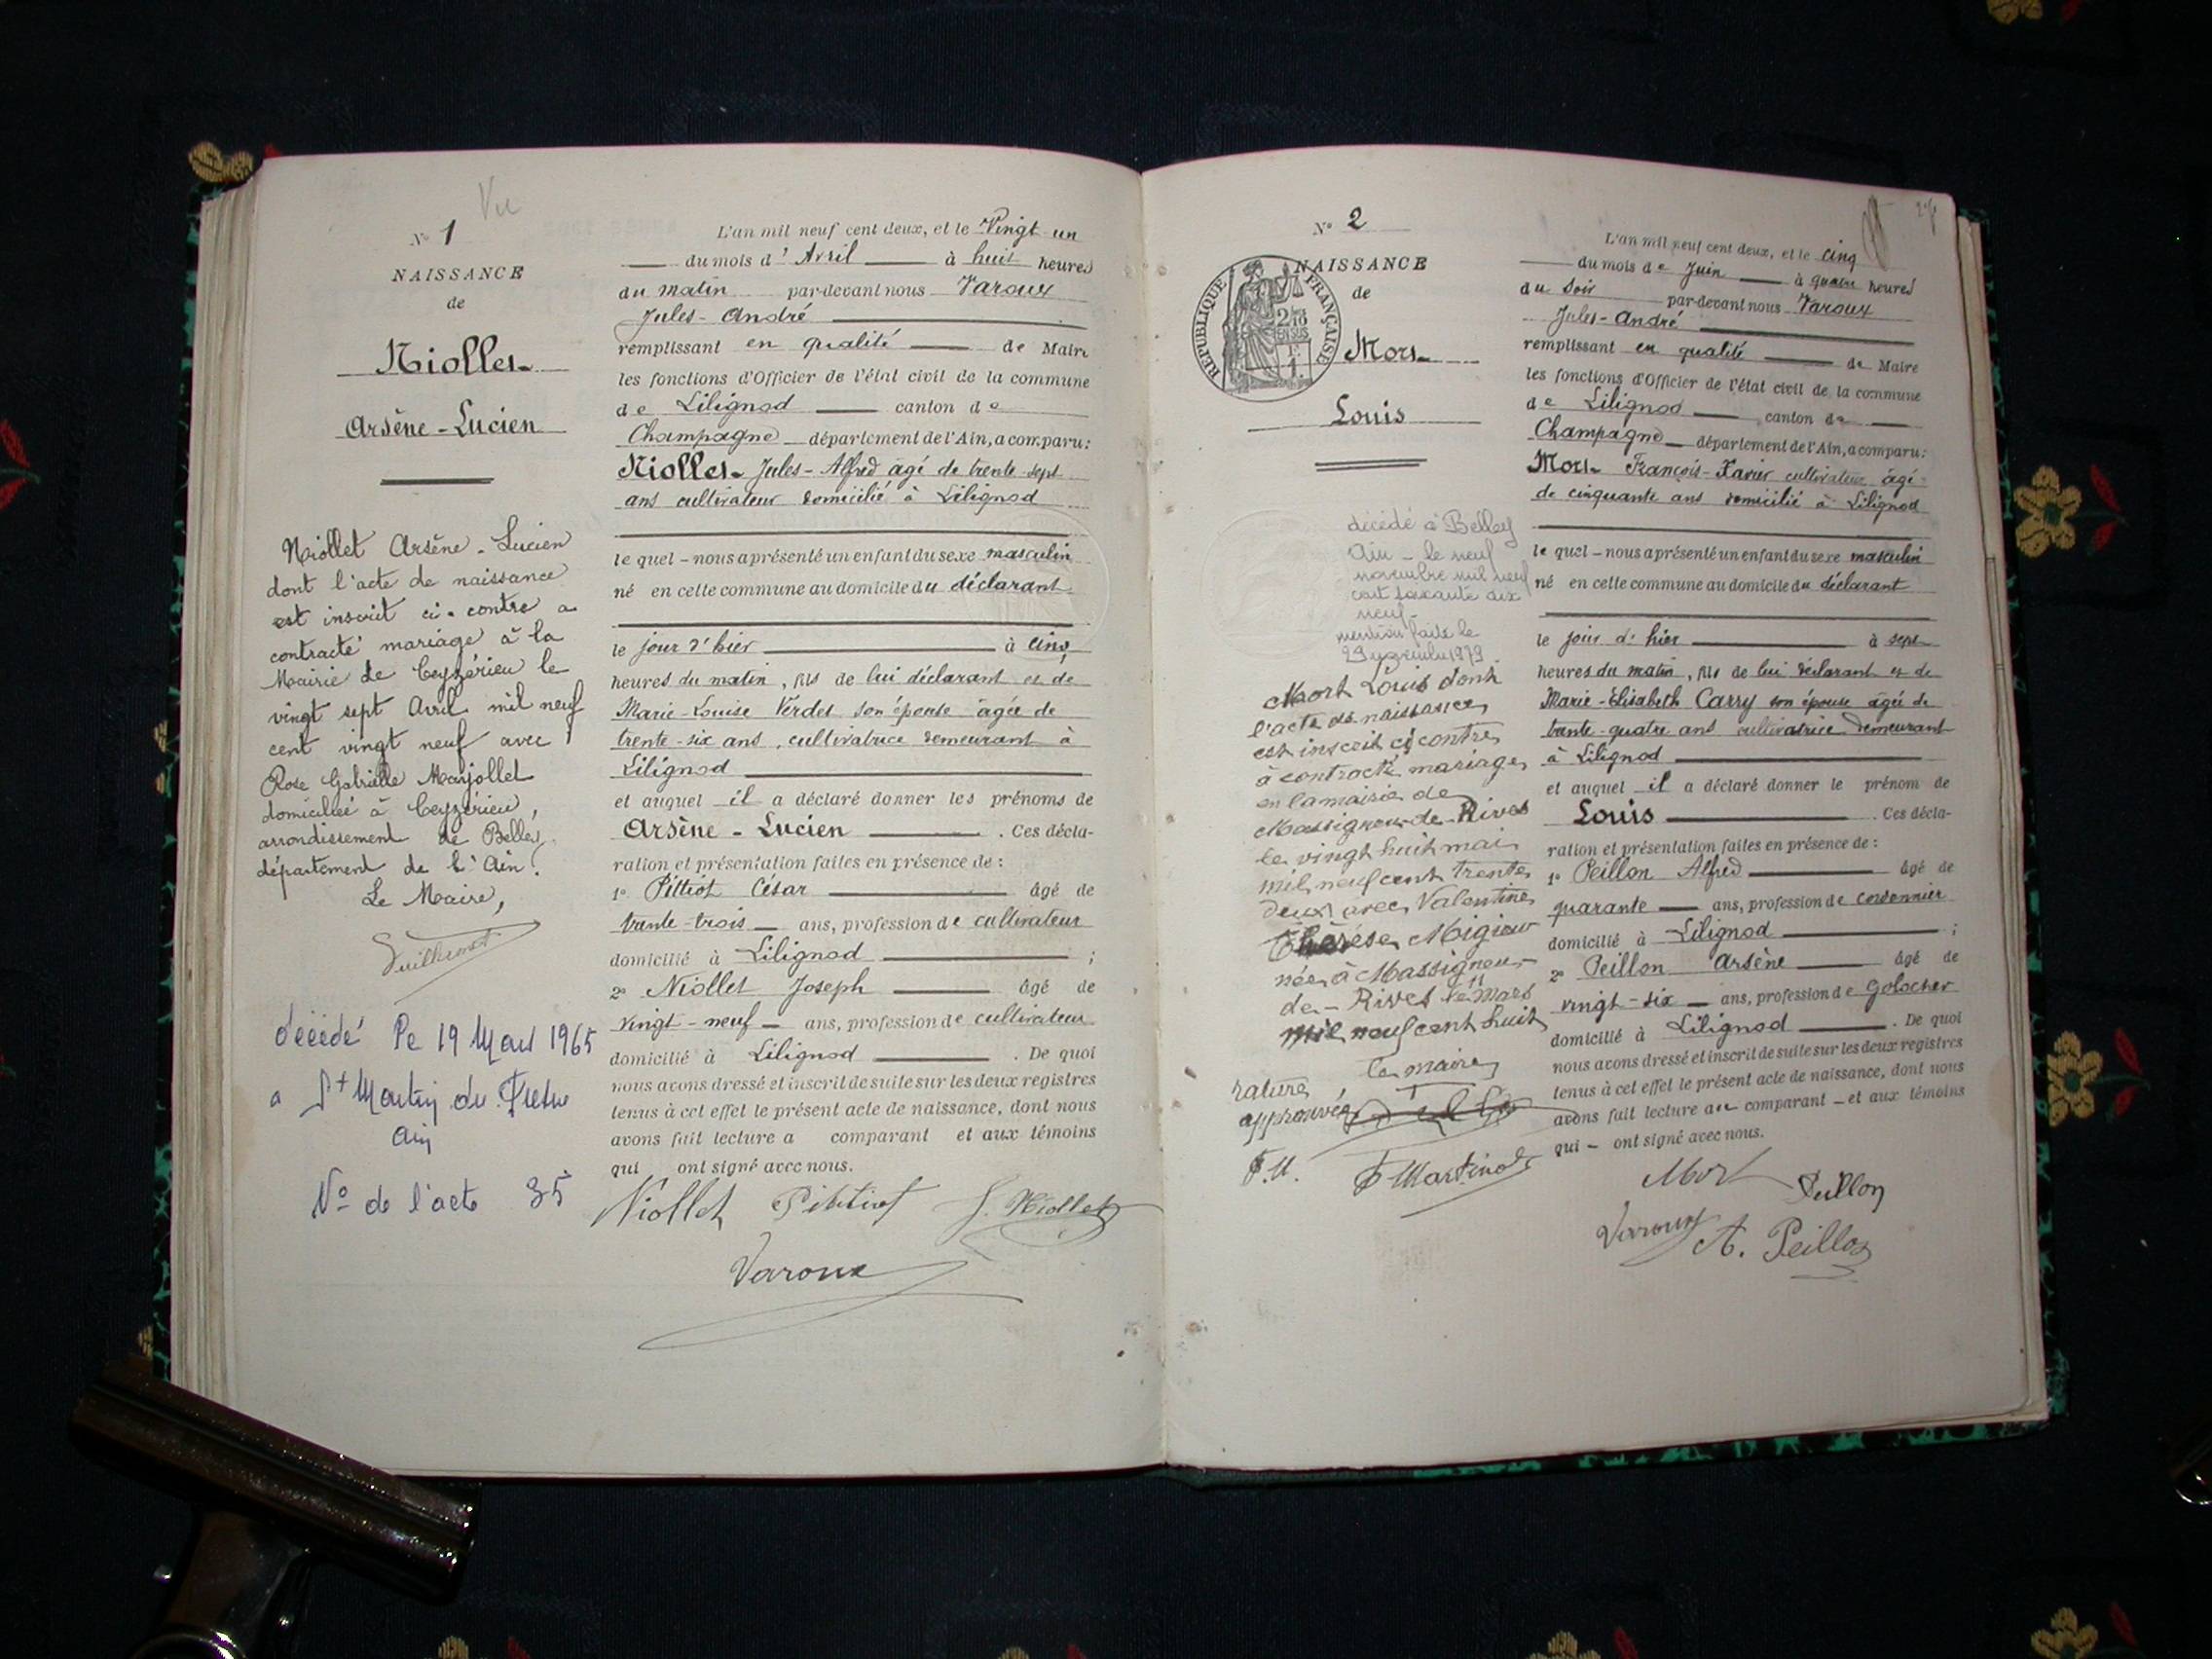 Vu
N° 1
NAISSANCE
de
Niollet
Arsène-Lucien
Niollet Arsène-Lucien
dont l'acte de naissance
est inscrit ci-contre a
contracté mariage à la
Mairie de Ceyzérieu le
vingt sept Avril mil neuf
cent vingt neuf avec
Rose Gabrielle Marjollet
domiciliée à Ceyzérieu,
arrondissement de Belley,
département de l'Ain.
Le Maire,
décédé le 19 Mars 1965
a St Martin du
Ain
N° de l'acte 35
L'an mil neuf cent deux, et le Vingt un
du mois d' Avril à huit heures
du matin par-devant nous Varoux
Jules-André
remplissant en qualité de Maire
les fonctions d'Officier de l'état civil de la commune
de Lilignod canton de
Champagne département de l'Ain, a comparu:
Niollet Jules-Alfred âgé de trente-sept
ans cultivateur domicilié à Lilignod
le quel - nous a présenté un enfant du sexe masculin
né en cette commune au domicile du déclarant
le jour d'hier à cinq
heures du matin, fils de lui déclarant et de
Marie-Louise Verdet son épouse âgée de
trente-six ans, cultivatrice demeurant à
Lilignod
et auquel il a déclaré donner les prénoms de
Arsène - Lucien . Ces décla-
ration et présentation faites en présence de :
1° Pittiot César âgé de
trente-trois ans, profession de cultivateur
domicilié à Lilignod ;
2° Niollet Joseph âgé de
vingt-neuf ans, profession de cultivateur
domicilié à Lilignod . De quoi
nous avons dressé et inscrit de suite sur les deux registres
tenus à cet effet le présent acte de naissance, dont nous
avons fait lecture a comparant et aux témoins
qui ont signé avec nous.
Niollet Pittiot J. Niollet
Varoux
N° 2
NAISSANCE
de
RÉPUBLIQUE FRANÇAISE
Mort
Louis
décédé à Belley
Ain - le neuf
novembre mil neuf
cent soixante dix
neuf.
mention faite le
Mort Louis dont
l'acte de naissance
est inscrit ci contre
à contracté mariage
en la mairie de
Massigneu-de-Rives
le vingt huit mai
mil neuf cent trente
deux avec Valentine
Thérèse Migieu
née à Massigneu-
de-Rives le 11 Mars
mil neuf cent huit
le maire
rature
approuvée
F.M. F Martinod
L'an mil neuf cent deux, et le cinq
du mois de Juin à quatre heures
du soir par-devant nous Varoux
Jules-André
remplissant en qualité de Maire
les fonctions d'Officier de l'état civil de la commune
de Lilignod canton de
Champagne département de l'Ain, a comparu:
Mort François-Xavier cultivateur âgé
de cinquante ans domicilié à Lilignod
le quel - nous a présenté un enfant du sexe masculin
né en cette commune au domicile du déclarant
le jour d' hier à sept
heures du matin, fils de lui déclarant et de
Marie-Elisabeth Carry son épouse âgée de
trente-quatre ans cultivatrice demeurant
à Lilignod
et auquel il a déclaré donner le prénom de
Louis . Ces décla-
ration et présentation faites en présence de :
1° Peillon Alfred âgé de
quarante ans, profession de cordonnier
domicilié à Lilignod ;
2° Peillon Arsène âgé de
vingt-six ans, profession de Galocher
domicilié à Lilignod . De quoi
nous avons dressé et inscrit de suite sur les deux registres
tenus à cet effet le présent acte de naissance, dont nous
avons fait lecture au comparant - et aux témoins
qui - ont signé avec nous.
Mort Peillon
Varoux A. Peillon